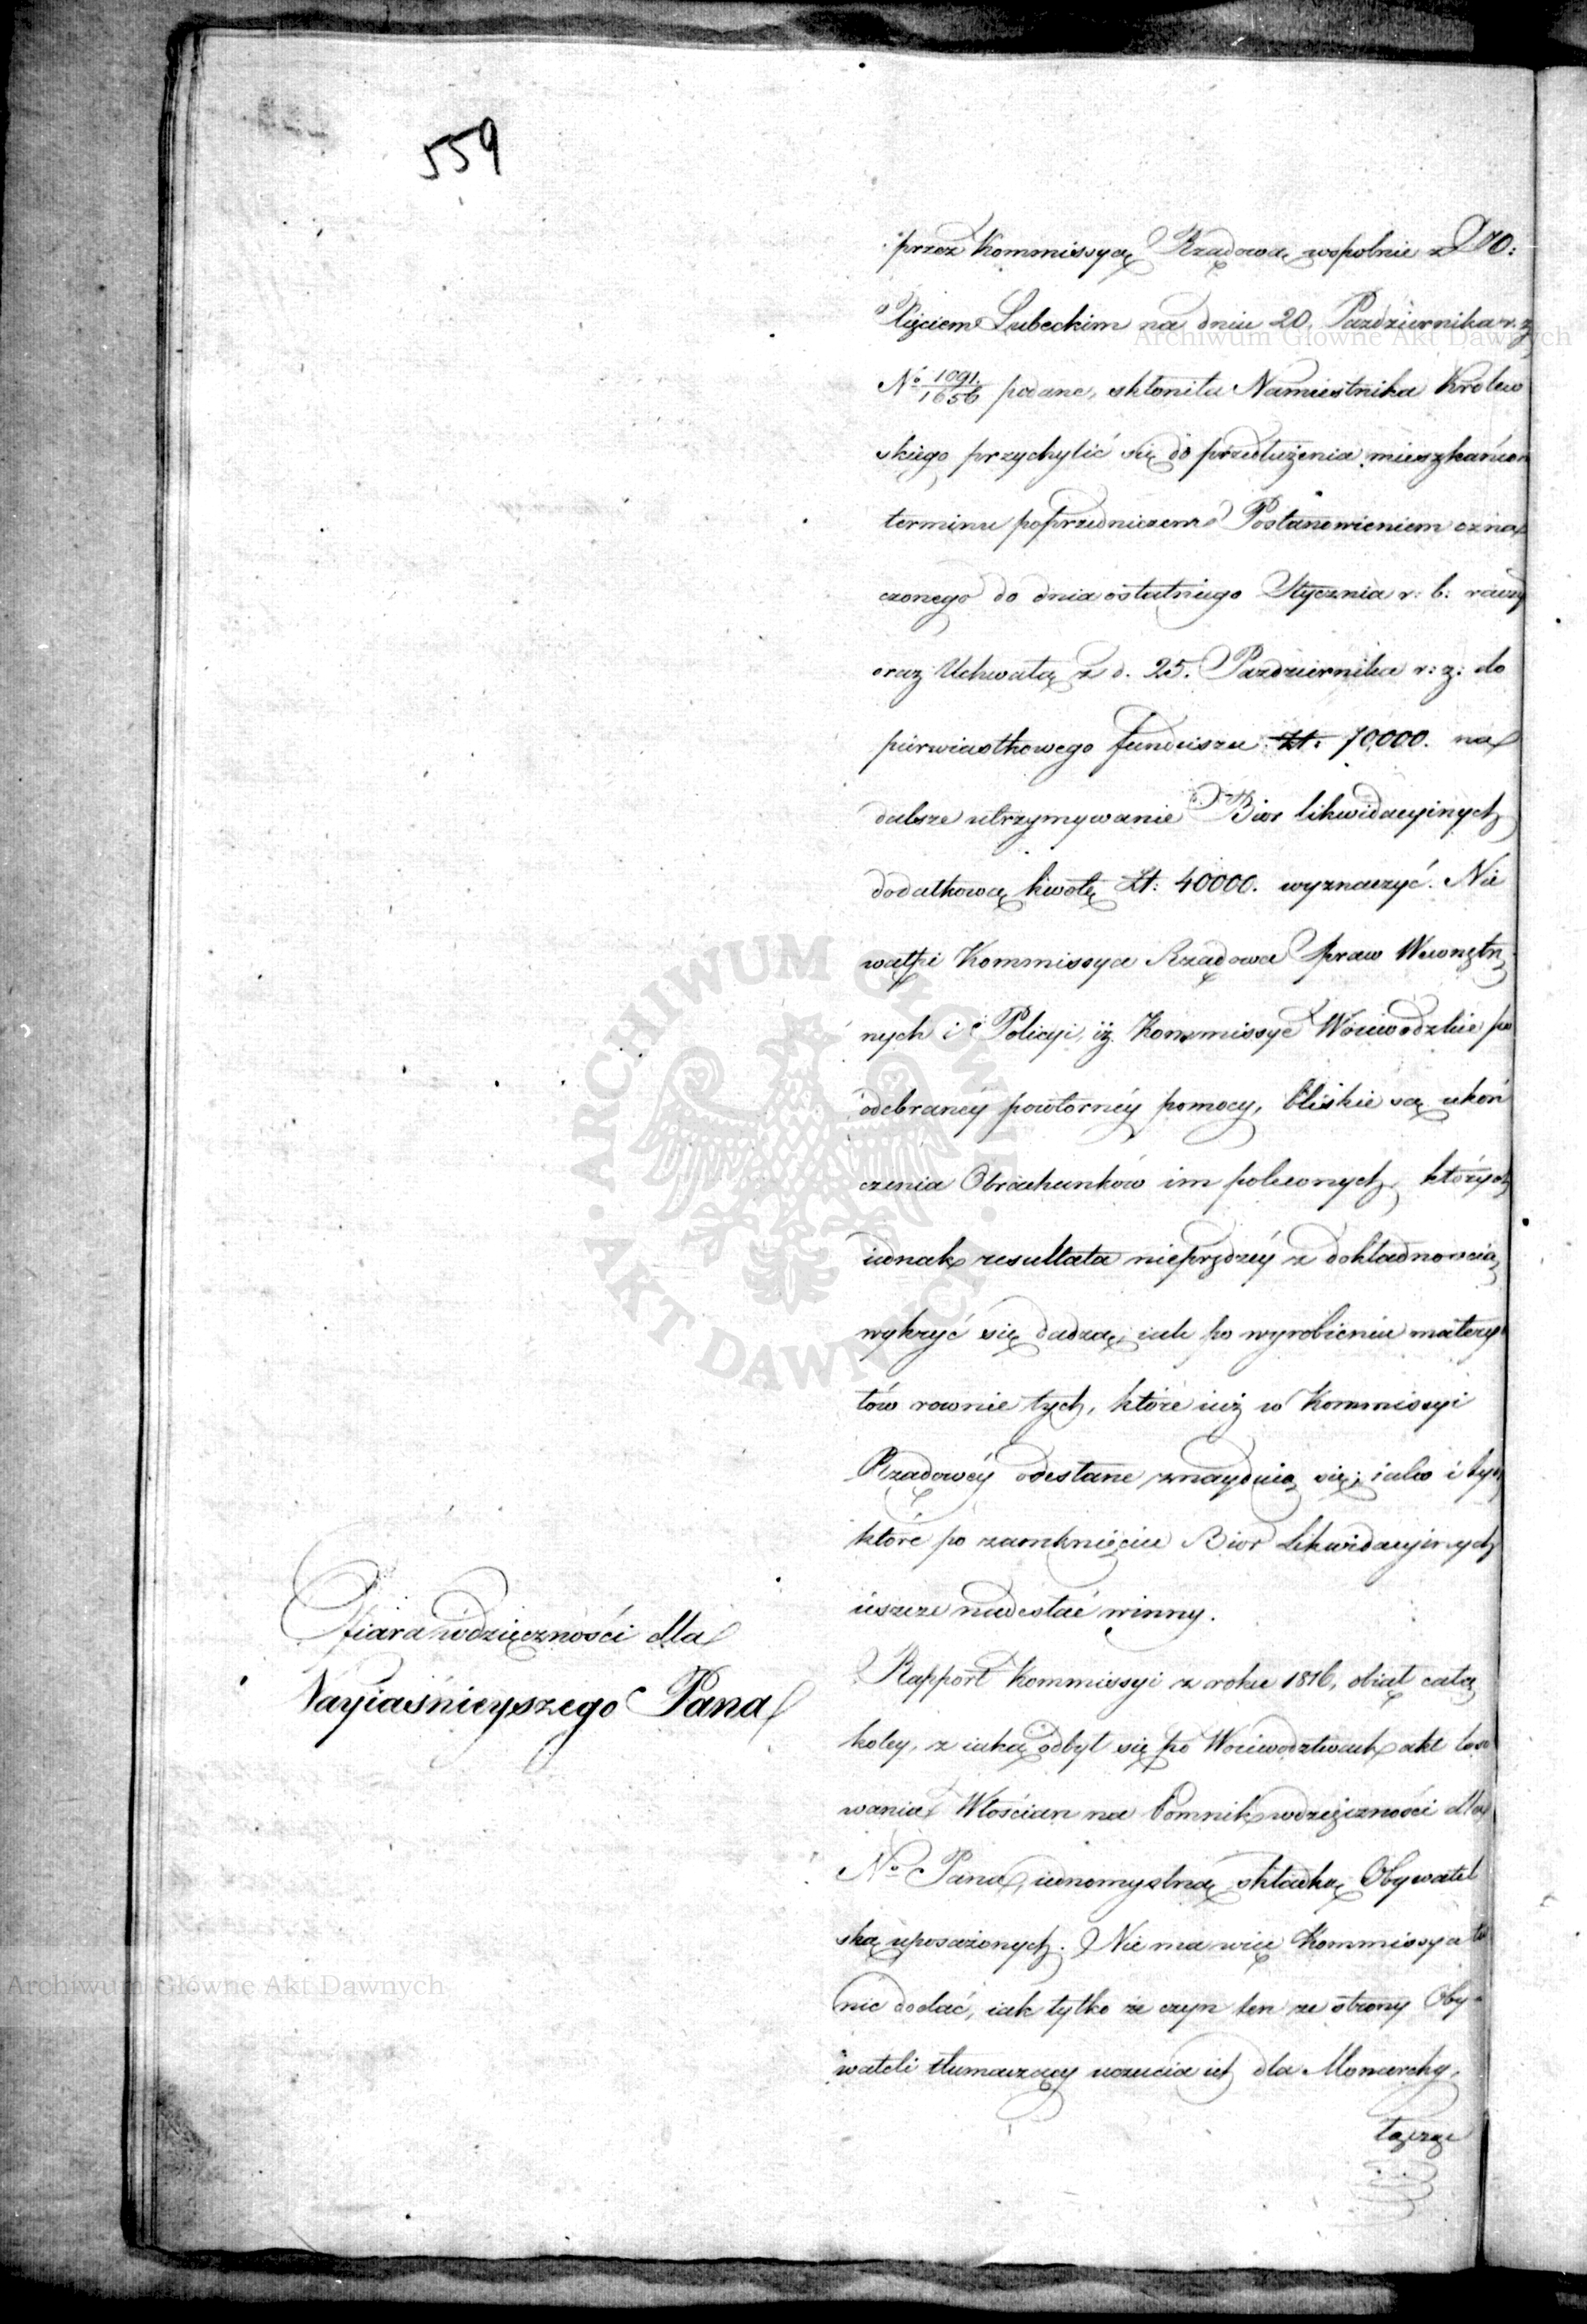 559
przez Kommissyą Rządową wspolnie z JO:
Xięciem Lubeckim na dniu 20. Pazdziernika r. z
Nº 1091/1656 podane, skłoniła Namiestnika Krolew
skiego przychylić się do przedłużenia mieszkańcom
terminu poprzedniczem Postanowieniem ozna
czonego do dnia ostatniego Stycznia r: b: raczył
oraz Uchwałą z d. 25. Pazdziernika r: z: do
pierwiastkowego funduszu Zł: 70000. na
dalsze utrzymywanie Biór likwidacyinych
dodatkową kwotę Zł: 40000. wyznaczyć. Nie
wątpi Kommissya Rządowa Spraw Wewnętrz
nych i Policyi, iż Kommissye Woiewodzkie po
odebranéy powtornéy pomocy, bliskie są ukoń
czenia Obrachunków im poleconych, których
iednak resultata nieprędzéy z dokładnoscią
wykryć się dadzą, iak po wyrobieniu materya
łów rownie tych, które iuż w Kommissyi
Rządowéy odesłane znayduią się, iako i tych
które po zamknięciu Biór Likwidacyinych
ieszcze nadesłać winny.
Ofiara wdzięczności dla
Nayiaśnieyszego Pana
Rapport Kommissyi z roku 1816, obiął całą
koley, z iaką odbył się po Woiewodztwach akt loso
wania Włościan na Pomnik wdzięczności dla
Nº Pana, iednomyslną składką Obywatel
ską uposażonych. Nie ma więc Kommissya tu
nic dodać, iak tylko że czyn ten ze strony Oby-
wateli tłumaczący uczucia ich dla Monarchy,
łączy
Archiwum Główne Akt Dawnych
Archiwum Główne Akt Dawnych
ARCHIWUM GŁÓWNE · AKT DAWNYCH ·